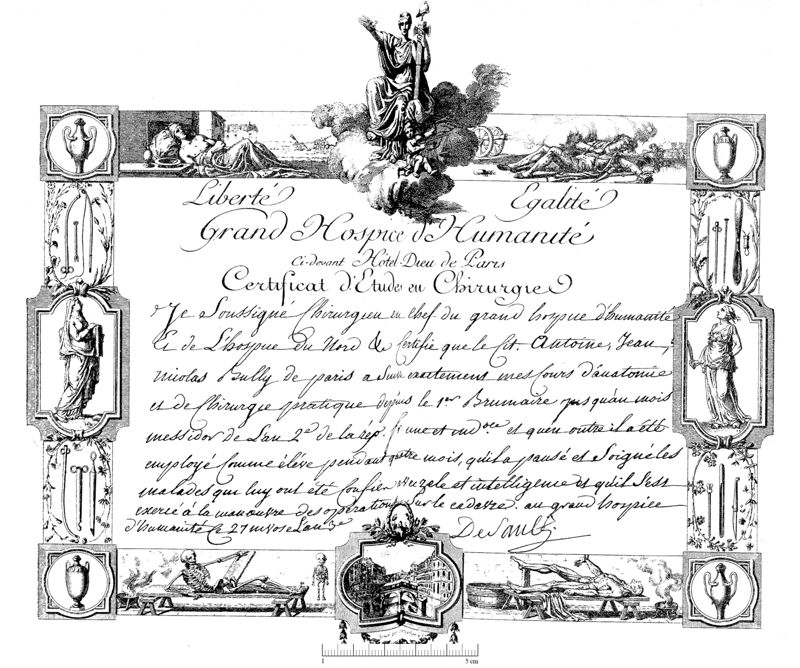 Liberté Egalité
Grand Hospice d'Humanité
Ci-devant Hôtel-Dieu de Paris
Certificat d'Etudes en Chirurgie
Je Soussigné Chirurgien en chef du grand hospice d'humanité
Et de L'hospice du Nord &c Certifie que le Cit. Antoine, Jean,
nicolas de paris a Suivi exactement mes Cours d'anatomie
et de Chirurgie pratique depuis le 1er Brumaire jusqu'au mois
messidor de L'an 2e de la rép. fr. une et indble et qu'en outre il a été
employé Comme élève pendant quatre mois, qu'il a pansé et Soigné les
malades qui luy ont été Confiés avec zele et intelligence et qu'il S'est
exercé à la manœuvre des operations Sur le cadavre. au grand hospice
d'humanité Ce 27 nivose L'an 3e
DeSault
1 5 cm